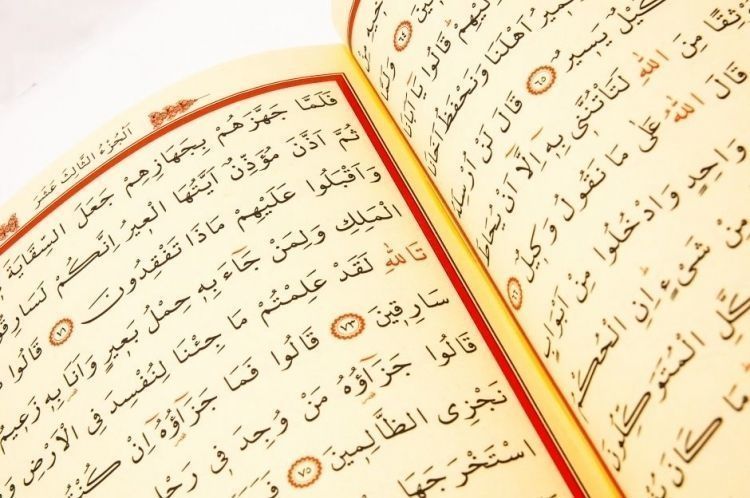 اِلَيْهِمْ قَالُوا يَٓا
اَهْلَنَا وَنَحْفَظُ
كَيْلٌ يَسِيرٌ ﴿٦٥﴾ قَالَ لَنْ
مِنَ اللّٰهِ لَتَأْتُنَّنِى بِهٖٓ اِلَّٓا اَنْ
قَالَ اللّٰهُ عَلٰى مَا نَقُولُ وَكِيلٌ
وَاحِدٍ وَادْخُلُوا مِنْ اَبْوَابٍ
مِنْ شَىْءٍ اِنِ الْحُكْمُ
الْمُتَوَكِّلُونَ
مَا كَانَ
اَلْجُزْءُ الثَّالِثَ عَشَرَ
فَلَمَّا جَهَّزَهُمْ بِجَهَازِهِمْ جَعَلَ السِّقَايَةَ
ثُمَّ اَذَّنَ مُؤَذِّنٌ اَيَّتُهَا الْعِيرُ اِنَّكُمْ لَسَارِقُونَ
وَاَقْبَلُوا عَلَيْهِمْ مَاذَا تَفْقِدُونَ ﴿٧١﴾ قَالُوا
الْمَلِكِ وَلِمَنْ جَٓاءَ بِهٖ حِمْلُ بَعِيرٍ وَاَنَا بِهٖ زَعِيمٌ
تَاللّٰهِ لَقَدْ عَلِمْتُمْ مَا جِئْنَا لِنُفْسِدَ فِى الْاَرْضِ
سَارِقِينَ ﴿٧٣﴾ قَالُوا فَمَا جَزَٓاؤُهُٓ اِنْ كُنْتُمْ
قَالُوا جَزَٓاؤُهُ مَنْ وُجِدَ فِى رَحْلِهٖ
نَجْزِى الظَّالِمِينَ ﴿٧٥﴾
اسْتَخْرَجَهَا